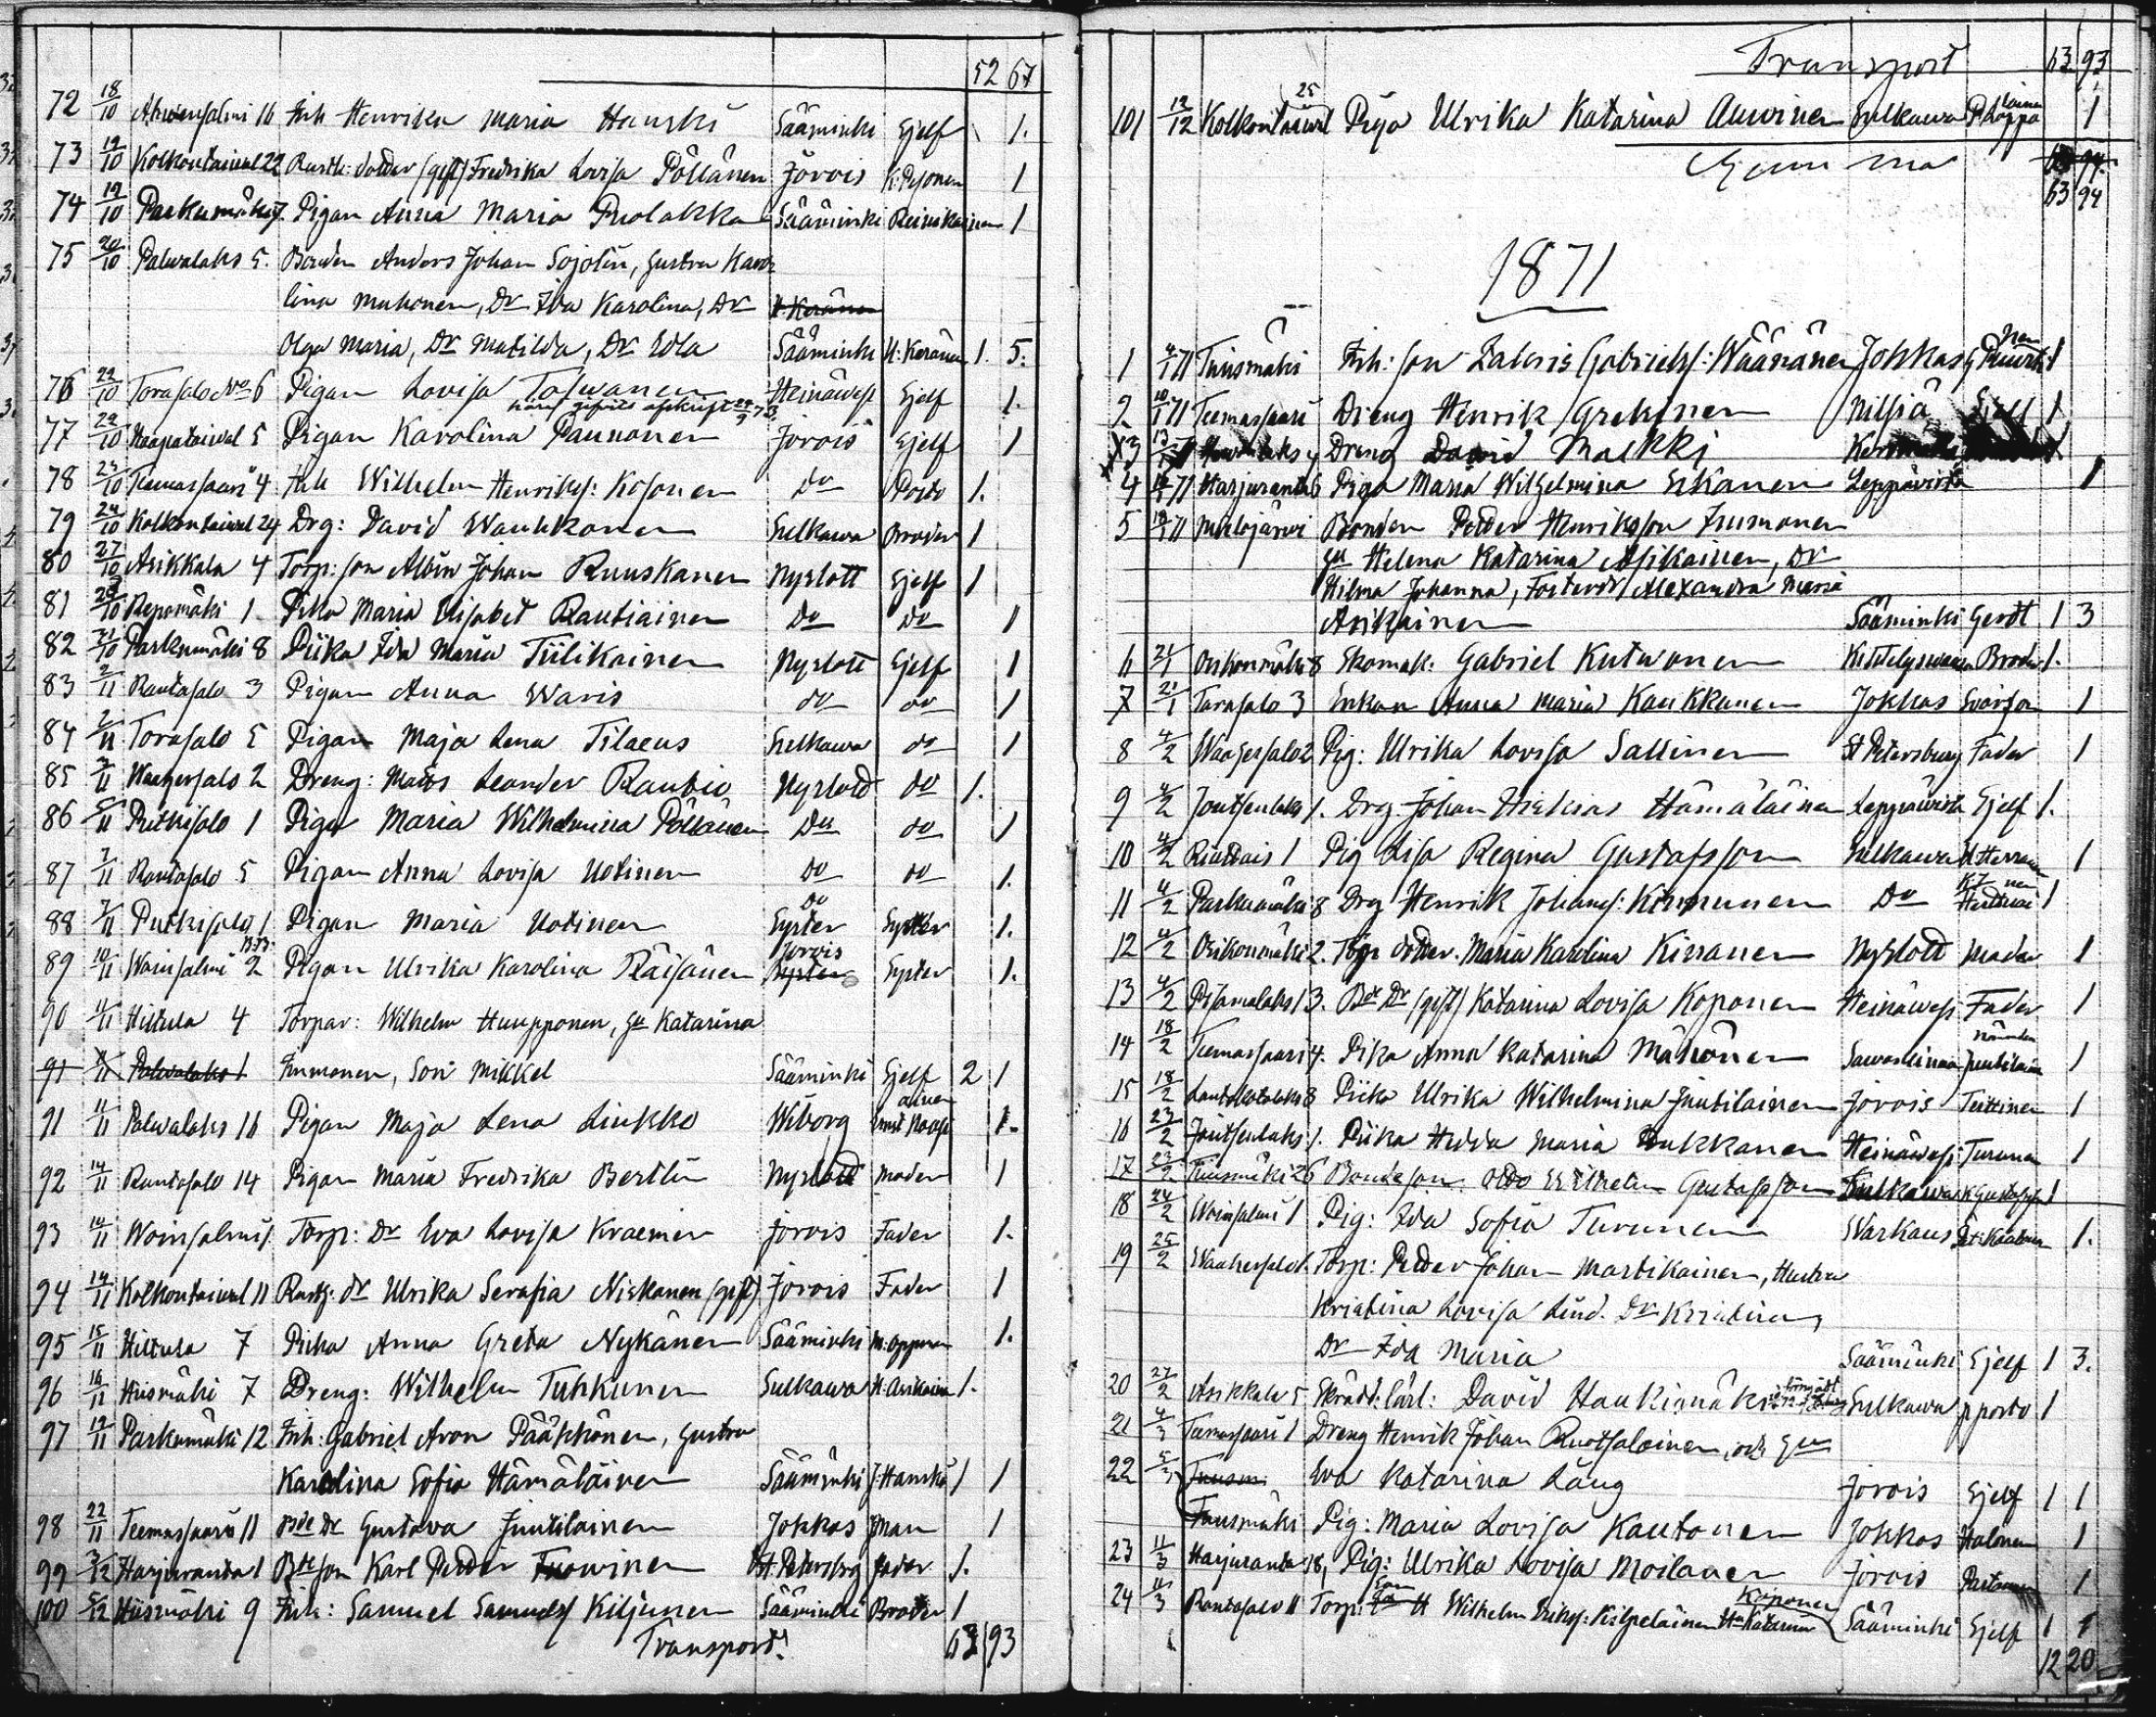 52 67
72 18/10 Ahvensalmi 16 Inh Henrika Maria Hauski Sääminki Sjelf 1.
73 19/10 Kolkontaival 22 Rusth: dotter (gift) Fredrika Lovisa Pöllänen Jorois K: Pesonen 1
74 19/10 Parkumäki 7. Pigan Anna Maria Puolakka Sääminki Reinikainen 1
75 20/10 Palvalaks 5. Bonden Anders Johan Sojotin, hustru Karo
lina Muhonen, Dr Ida Karolina, Dr
Olga Maria, Dr Matilda, Dr Edla Sääminki H: Keränen 1. 5.
76 22/10 Torasalo No 6 Pigan Lovisa Toivanen Heinävesi Sjelf 1.
77 22/10 Haapataival 5 Pigan Karolina Paunonen Jorois Sjelf 1
78 23/10 Teemassaari 4 Inh Wilhelm Henrikss: Kosonen Do Posto 1.
79 24/10 Kolkontaival 24 Drg: David Wauhkonen Sulkawa Broder 1
80 27/10 Asikkala 4 Torp: son Albin Johan Ruuskanen Nyslott Sjelf 1
81 29/10 Repomäki 1 Pika Maria Elisabet Rautiainen Do Do 1
82 31/10 Parkumäki 8 Piika Ida Maria Tiilikainen Nyslott Sjelf 1
83 2/11 Rantasalo 3 Pigan Anna Waris do do 1
84 2/11 Torasalo 5 Pigan Maja Lena Tilaeus Sulkawa do 1
85 3/11 Waagersalo 2 Dreng: Matts Leander Rautio Nyslott do 1.
86 5/11 Putkisalo 1 Pigan Maria Wilhelmina Pöllänen Do do 1
87 7/11 Rantasalo 5 Pigan Anna Lovisa Uotinen do do 1.
88 7/11 Putkisalo 1 Pigan Maria Uotinen do Syster Syster 1.
89 10/11 Woinsalmi 2 Pigan Ulrika Karolina Räisänen Jorois Syster 1.
90 11/11 Hiltula 4 Torpar: Wilhelm Huupponen, Hu Katarina
91 11/11 Palvalaks 1 Immonen, Son Mikkel Sääminki Sjelf 2 1
91 11/11 Palvalaks 16 Pigan Maja Lena Liukko Wiborg 1.
92 14/11 Rantasalo 14 Pigan Maria Fredrika Bertlin Nyslott Moder 1
93 14/11 Woinsalmi 1 Torp: Dr Eva Lovisa Kraemer Jorois Fader 1.
94 14/11 Kolkontaival 11 Rusth: dr Ulrika Serafia Niskanen (gift) Jorois Fader 1
95 15/11 Hiltula 7 Pika Anna Greta Nykänen Sääminki 1.
96 16/11 Hiismäki 7 Dreng: Wilhelm Tukkunen Sulkawa H: Asikainen 1.
97 19/11 Parkumäki 12 Inh: Gabriel Aron Pääkkönen, hustru
Karolina Sofia Hämäläinen Sääminki J: Hauski 1 1
98 22/11 Teemassaari 11 Bde Dr Gustava Juutilainen Jokkas Man 1
99 3/12 Harjuranta 1 Bde son Karl Petter Tuovinen St. Petersbrg Fader 1.
100 5/12 Hiismäki 9 Inh: Samuel Samuelss Kiljunen Sääminki Broder 1
Transport. 63 93
Transport 63 93
101 12/12 Kolkontaival 25 Piga Ulrika Katarina Auvinen Sulkawa 1
Summa 63 94
63 94
1871
1 4/1 71 Tuusmäki Inh: son Zakris Gabrielss: Wäänänen Jokkas 1
2. 10/1 71 Teemassaari Dreng Henrik Grekinen Nilsiä Sjelf 1
3 13/1 Dreng David Malkki
4 71 Harjuranta 6 Piga Maria Wilhelmina Eskanen Leppävirta 1
5 18/1 71 Mulojärvi Bonden Petter Henriksson Immonen
Hu Helena Katarina Asikainen, Dr
Hilma Johanna, Fosterdr Alexandra Maria
Asikainen Sääminki Gerdt 1 3
6 21/1 Osikonmäki 8 Skomak: Gabriel Kutvonen Broder 1.
7 21/1 Torasalo 3 Enkan Anna Maria Kaukkanen Jokkas Svärson 1
8 4/2 Waagersalo 2 Pig: Ulrika Lovisa Sallinen St Petersburg Fader 1
9 4/2 Joutsenlaks 1. Drg. Johan Hiskias Hämäläinen Leppävirta Sjelf 1.
10 4/2 Rauttais 1 Pig Lisa Regina Gustafsson Sulkawa 1
11 4/2 Parkumäki 8 Drg Henrik Johans: Kinnunen Do 1
12 4/2 Osikonmäki 2. Torp dotter. Maria Karolina Kirranen Nyslott Moder 1
13 4/2 Pisamalaks 13. Bde Dr (gift) Katarina Lovisa Koponen Heinävesi Fader 1
14 18/2 Teemassaari 4. Pika Anna Katarina Mähönen Juutilain 1
15 18/2 Lautakotalaks 8 Piika Ulrika Wilhelmina Juutilainen Jorois Teittinen 1
16 23/2 Joutsenlaks 1. Piika Hedda Maria Tukkanen Heinävesi Turunen 1
17 23/2 Tuusmäki 26 Bondeson: Otto Wilhelm Gustafsson Sulkawa K Gustafss 1
18 24/2 Woinsalmi 1 Pig: Ida Sofia Turunen Warkaus 1.
19 25/2 Waahersalo 1. Torp: Petter Johan Martikainen, Hustru
Kristina Lovisa Lind. Dr Kristina,
Dr Ida Maria Sääminki Sjelf 1 3.
20 27/2 Asikkala 5 Skrädd: lärl: David Haukismäki Sulkawa pposto 1
21 4/3 Teemassaari 1 Dreng Henrik Johan Ruotsalainen, och Hu
22 5/3 Tuusm Eva Katarina Laug Jorois Sjelf 1 1
Tuusmäki Pig: Maria Lovisa Kautonen Jokkas Halonen 1
23 11/3 Harjuranta 18, Pig: Ulrika Lovisa Moilanen Jorois Partanen 1
24 11/3 Rantasalo 11 Torp: son Wilhelm Erikss: Kilpeläinen Hu Katarina Koponen Sääminki Sjelf 1 1
12 20